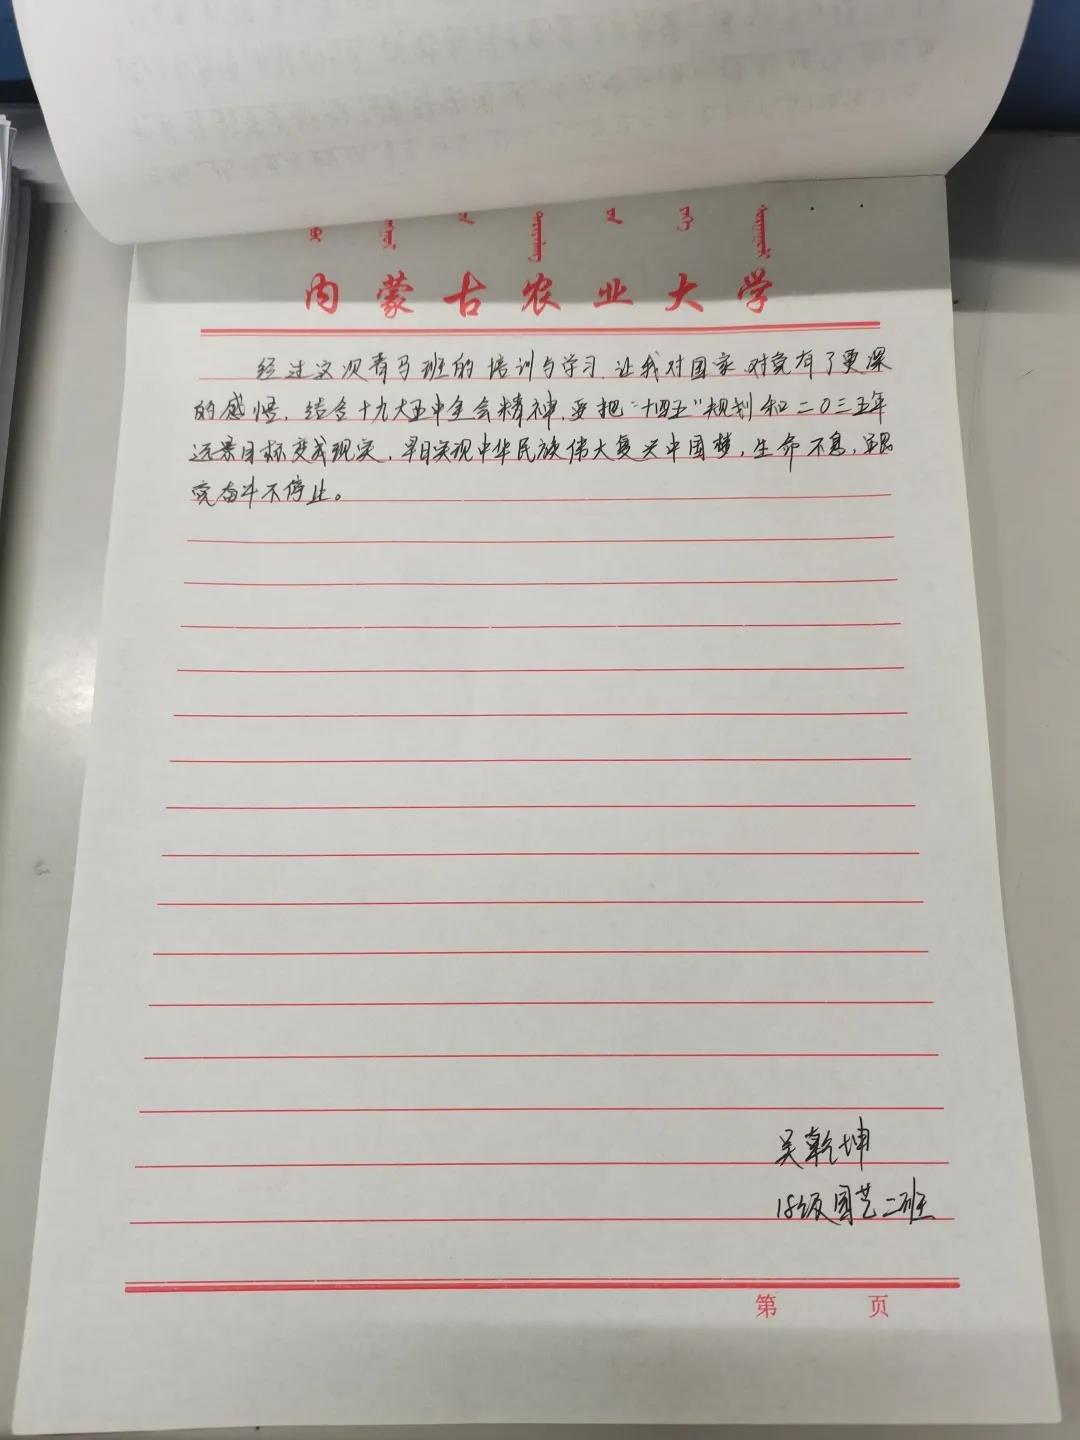 内蒙古农业大学
经过这次青马班的培训与学习,让我对国家、对党有了更深
的感悟,结合十九大五中全会精神,要把"十四五"规划和二〇三五年
远景目标变成现实,早日实现中华民族伟大复兴中国梦,生命不息,
奋斗不停止。
吴乾坤
18级园艺二班
第 页